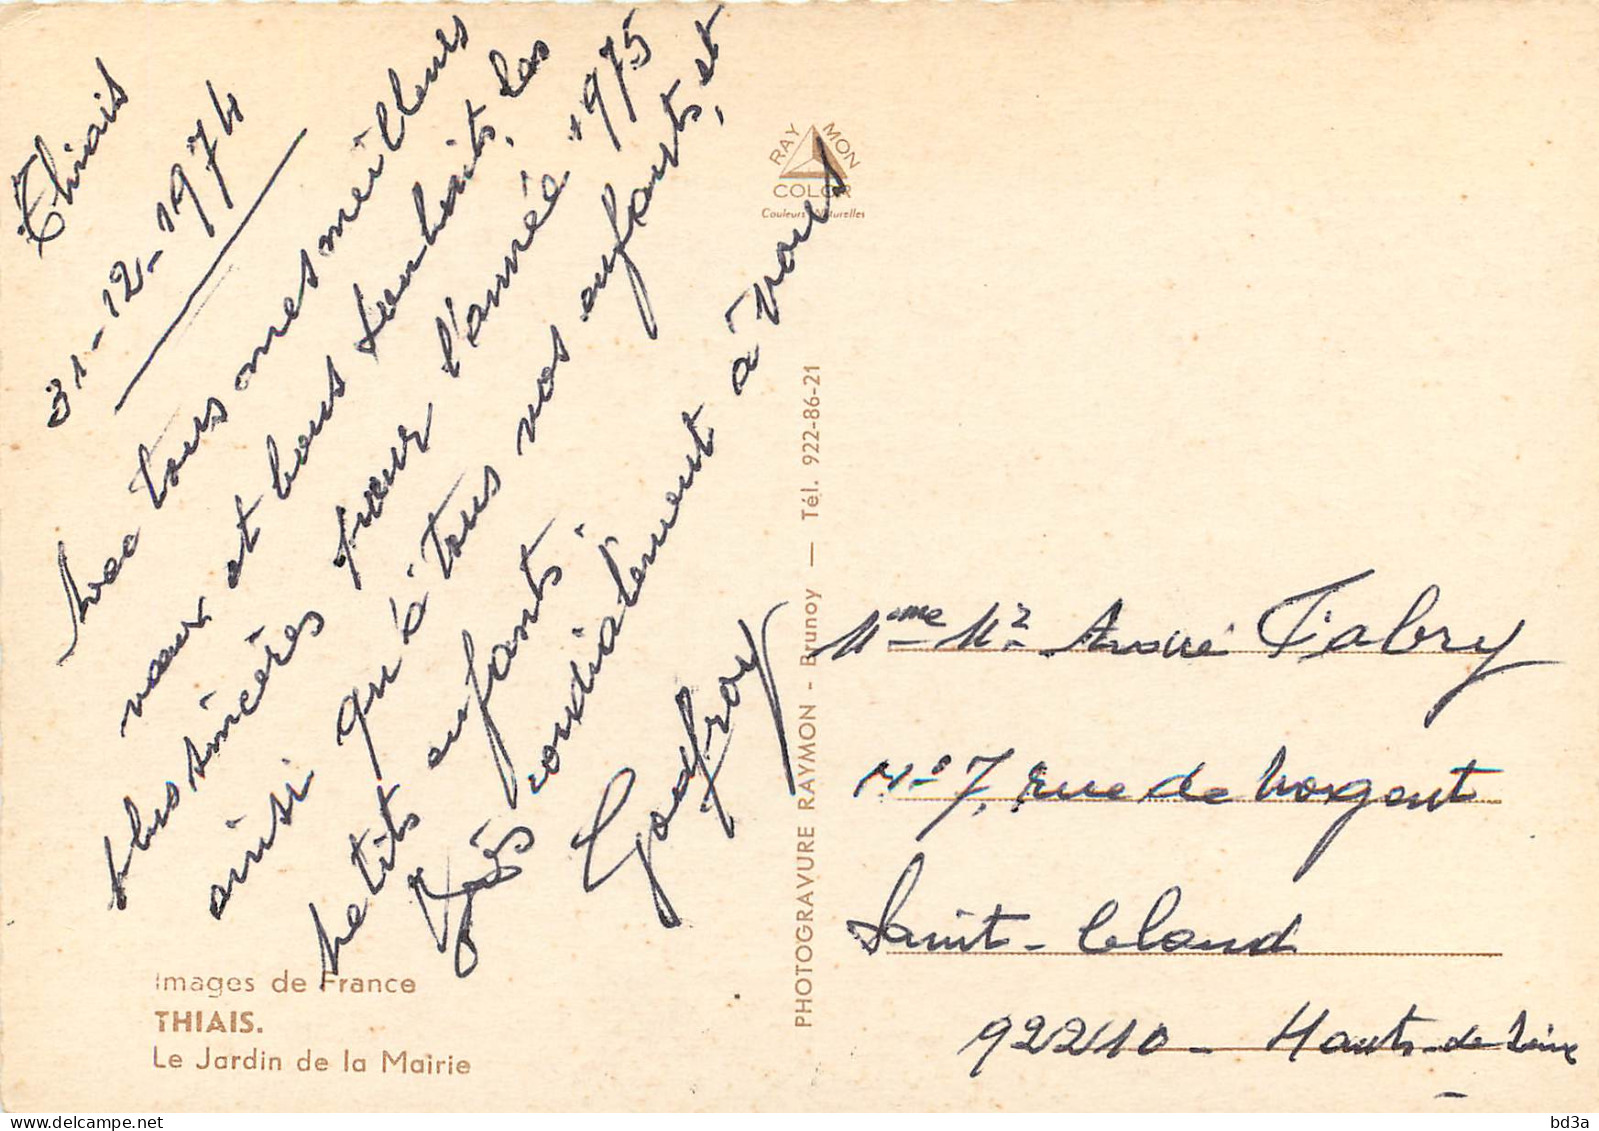 Thiais
31-12-1974
Avec tous mes meilleurs
vœux et bons souhaits, les
plus sincères pour l'année 1975
ainsi qu'à tous vos enfants, et
petits enfants.
Très cordialement à vous
Godfroy
RAYMON
COLOR
Couleurs Naturelles
PHOTOGRAVURE RAYMON - Brunoy — Tél. 922-86-21
Mme Mr André Fabry
N° 7, rue de Nogent
Saint-Cloud
92210 - Hauts-de-Seine
Images de France
THIAIS.
Le Jardin de la Mairie
www.delcampe.net
bd3a